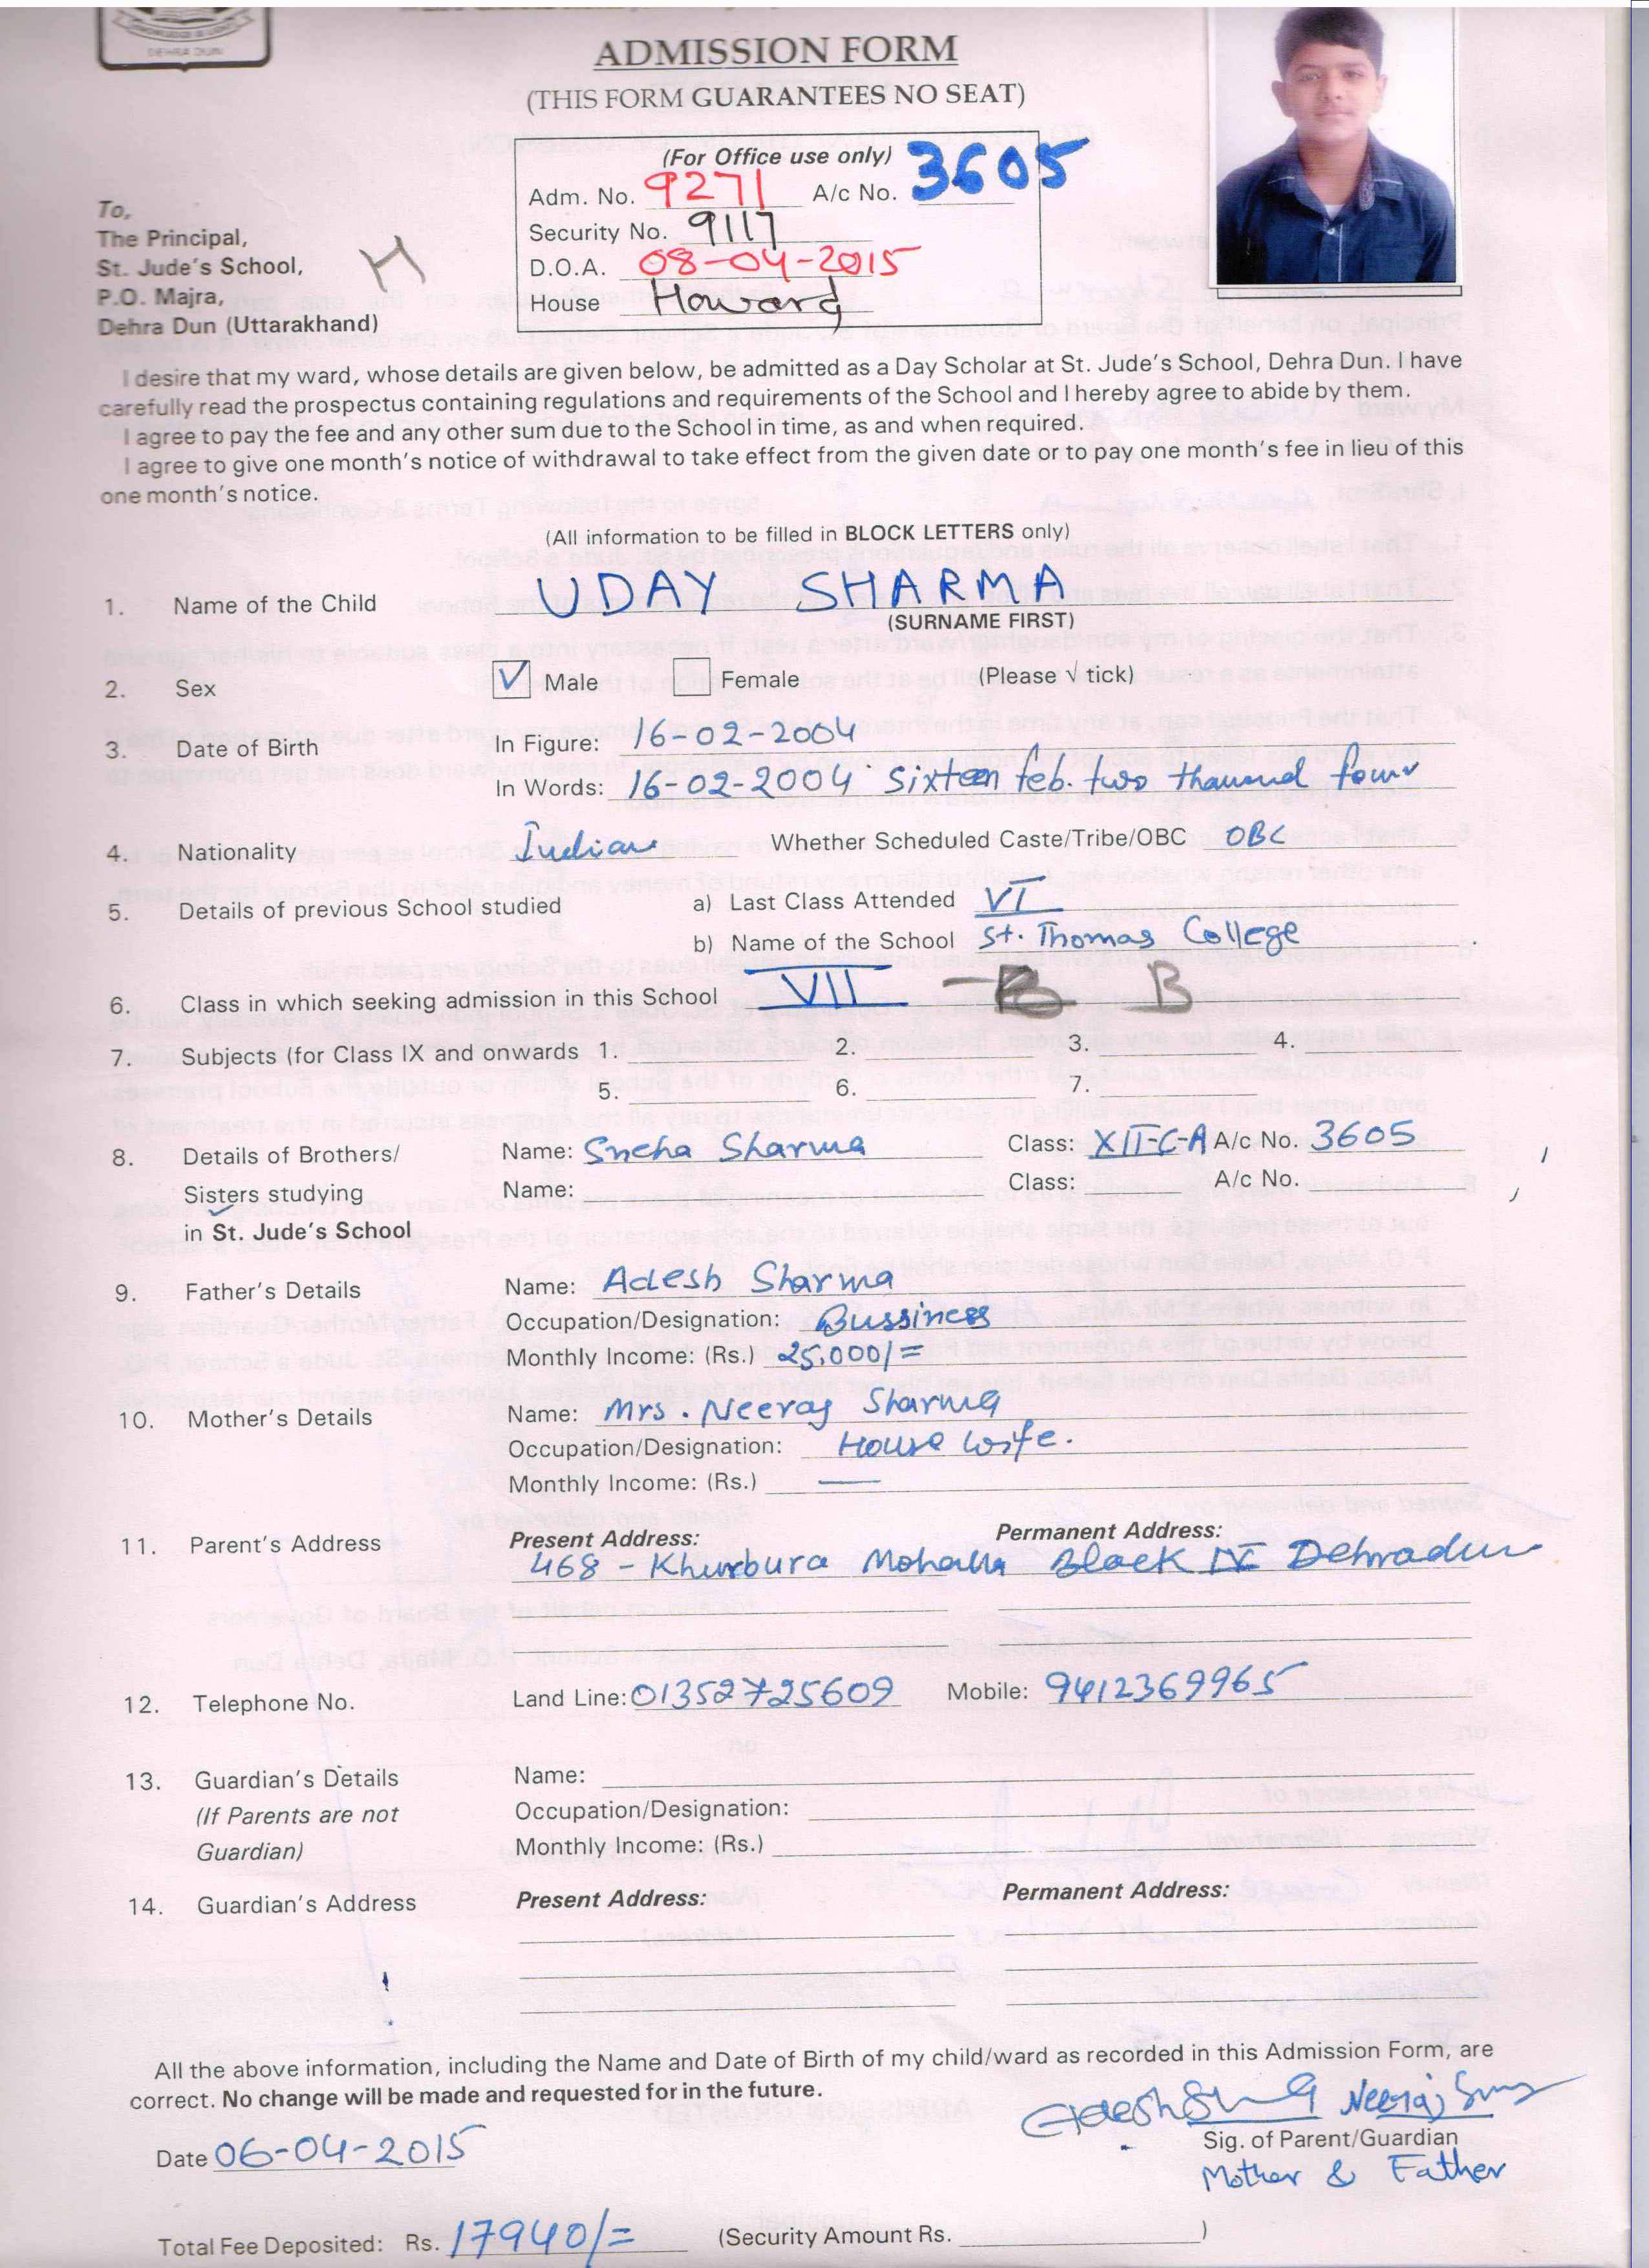 DEHRA DUN
ADMISSION FORM
(THIS FORM GUARANTEES NO SEAT)
(For Office use only)
Adm. No. 9271 A/c No. 3605
Security No. 9117
D.O.A. 08-04-2015
House Howard
To,
The Principal,
St. Jude's School,
P.O. Majra,
Dehra Dun (Uttarakhand)
H
I desire that my ward, whose details are given below, be admitted as a Day Scholar at St. Jude's School, Dehra Dun. I have
carefully read the prospectus containing regulations and requirements of the School and I hereby agree to abide by them.
I agree to pay the fee and any other sum due to the School in time, as and when required.
I agree to give one month's notice of withdrawal to take effect from the given date or to pay one month's fee in lieu of this
one month's notice.
(All information to be filled in BLOCK LETTERS only)
1. Name of the Child UDAY SHARMA
(SURNAME FIRST)
2. Sex Male Female (Please √ tick)
3. Date of Birth In Figure: 16-02-2004
In Words: 16-02-2004 Sixteen feb. two thaunnd four
4. Nationality Indian Whether Scheduled Caste/Tribe/OBC OBC
5. Details of previous School studied a) Last Class Attended VI
b) Name of the School St. Thomas College
6. Class in which seeking admission in this School VII B
7. Subjects (for Class IX and onwards 1. 2. 3. 4.
5. 6. 7.
8. Details of Brothers/ Name: Sneha Sharma Class: XII-C-A A/c No. 3605
Sisters studying Name: Class: A/c No.
in St. Jude's School
9. Father's Details Name: Adesh Sharma
Occupation/Designation: Bussiness
Monthly Income: (Rs.) 25,000/=
10. Mother's Details Name: Mrs. Neeraj Sharma
Occupation/Designation: House wife.
Monthly Income: (Rs.) —
11. Parent's Address Present Address: Permanent Address:
468 - Khurbura Mohalla Block IV Dehradun
12. Telephone No. Land Line: 01352725609 Mobile: 9412369965
13. Guardian's Details Name:
(If Parents are not Occupation/Designation:
Guardian) Monthly Income: (Rs.)
14. Guardian's Address Present Address: Permanent Address:
All the above information, including the Name and Date of Birth of my child/ward as recorded in this Admission Form, are
correct. No change will be made and requested for in the future.
Date 06-04-2015
Sig. of Parent/Guardian
Mother & Father
Total Fee Deposited: Rs. 17940/= (Security Amount Rs. )